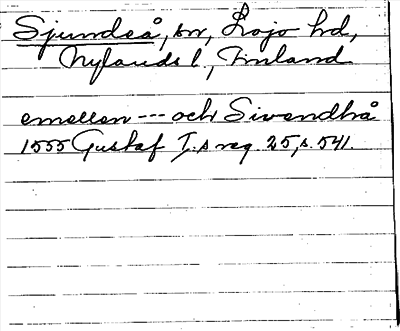 Sjundeå, sn, Lojo hd,
Nylands l, Finland
emellan --- och Sivendhå
1555 Gustaf I.s reg. 25, s. 541.